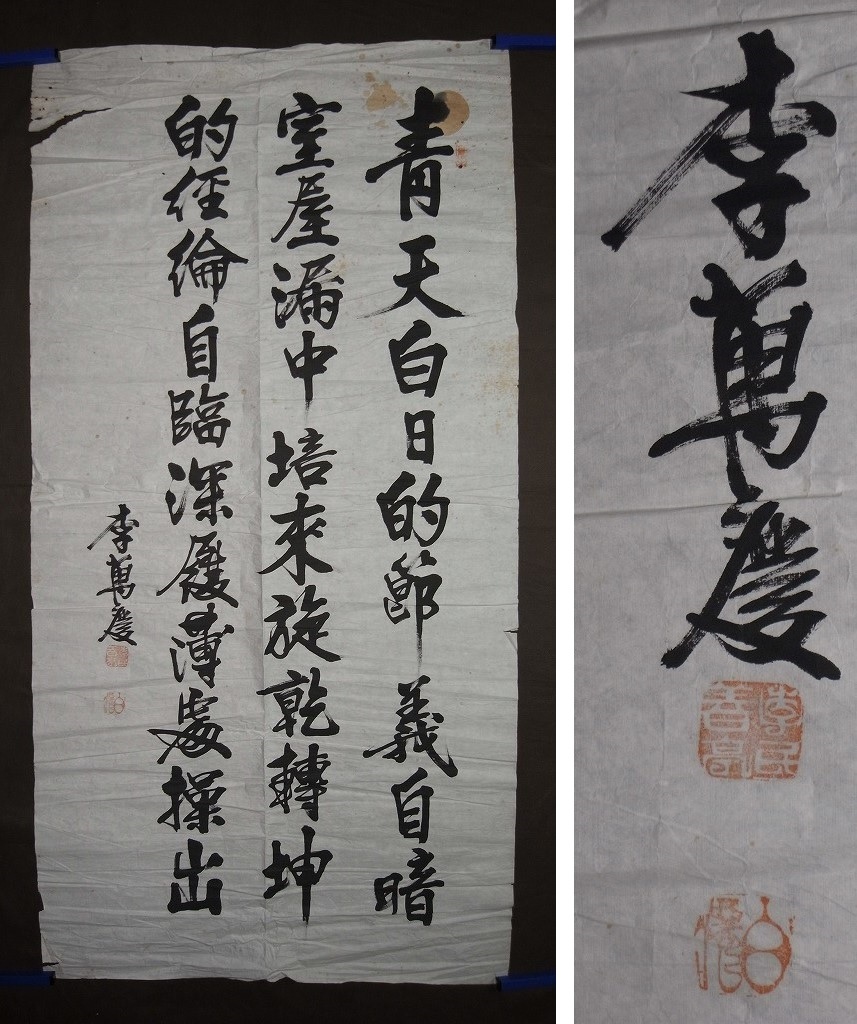 青天白日的節義自暗
室屋漏中培來旋乾轉坤
的経綸自臨深履薄處操出
李萬慶
李萬慶